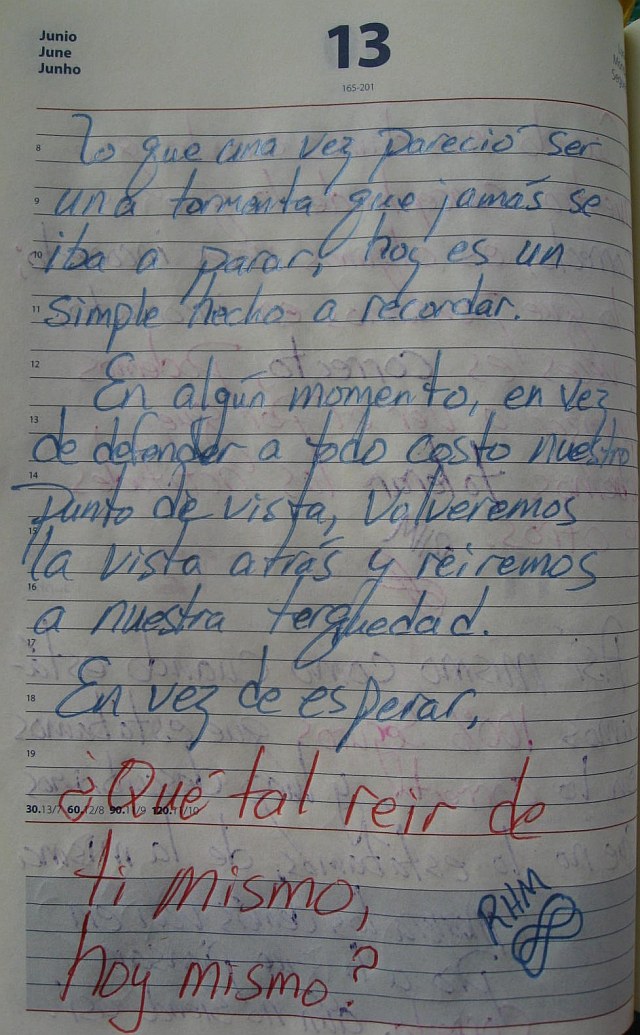 Junio
June
Junho
13
165-201
8
Lo que una vez pareció ser
9
una tormenta que jamás se
10
iba a parar, hoy es un
11
simple hecho a recordar.
12
En algún momento, en vez
13
de defender a todo costo nuestro
14
punto de vista, volveremos
15
la vista atrás y reiremos
16
a nuestra terquedad.
17
18
En vez de esperar,
19
¿Qué tal reir de
30.13/7 60.12/8 90.11/9 120.11/10
ti mismo,
hoy mismo?
RHM